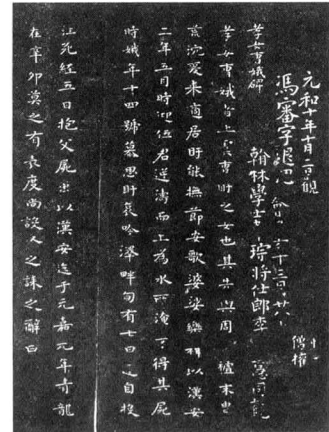 元和十年十月二日觀
馮審字退思
僧權
翰林學士
將仕郎
孝女曹娥碑
孝女曹娥者上虞曹盱之女也其先與周末胄
荒沈爰來適居盱能撫節安歌婆娑樂神以漢安
二年五月時迎伍君逆濤而上為水所淹不得其屍
時娥年十四號慕思盱哀吟澤畔旬有七日遂自投
江死經五日抱父屍出以漢安迄于元嘉元年青龍
在辛卯莫之有表度尚設之誄之辭曰